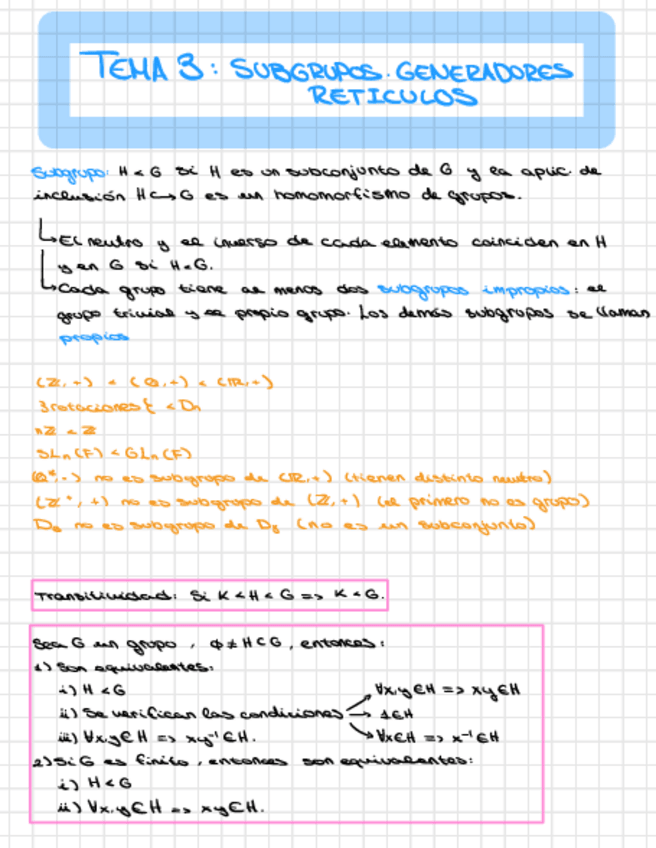 TEMA 3: SUBGRUPOS. GENERADORES
RETICULOS
Subgrupo: H < G si H es un subconjunto de G y la aplic. de
inclusión H↪G es un homomorfismo de grupos.
↳ El neutro y el inverso de cada elemento coinciden en H
y en G si H<G.
↳ Cada grupo tiene al menos dos subgrupos impropios: el
grupo trivial y el propio grupo. Los demás subgrupos se llaman
propios
(Z,+) < (Q,+) < (R,+)
{rotaciones} < Dn
nZ < Z
SLn(F) < GLn(F)
(Q*,·) no es subgrupo de (R,+) (tienen distinto neutro)
(Z⁺,+) no es subgrupo de (Z,+) (el primero no es grupo)
D6 no es subgrupo de D8 (no es un subconjunto)
Transitividad: Si K < H < G => K < G.
Sea G un grupo, ϕ≠H⊂G, entonces:
1) Son equivalentes:
i) H < G
∀x,y∈H => xy∈H
ii) Se verifican las condiciones → 1∈H
iii) ∀x,y∈H => xy⁻¹∈H.
∀x∈H => x⁻¹∈H
2) Si G es finito, entonces son equivalentes:
i) H<G
ii) ∀x,y∈H => xy∈H.